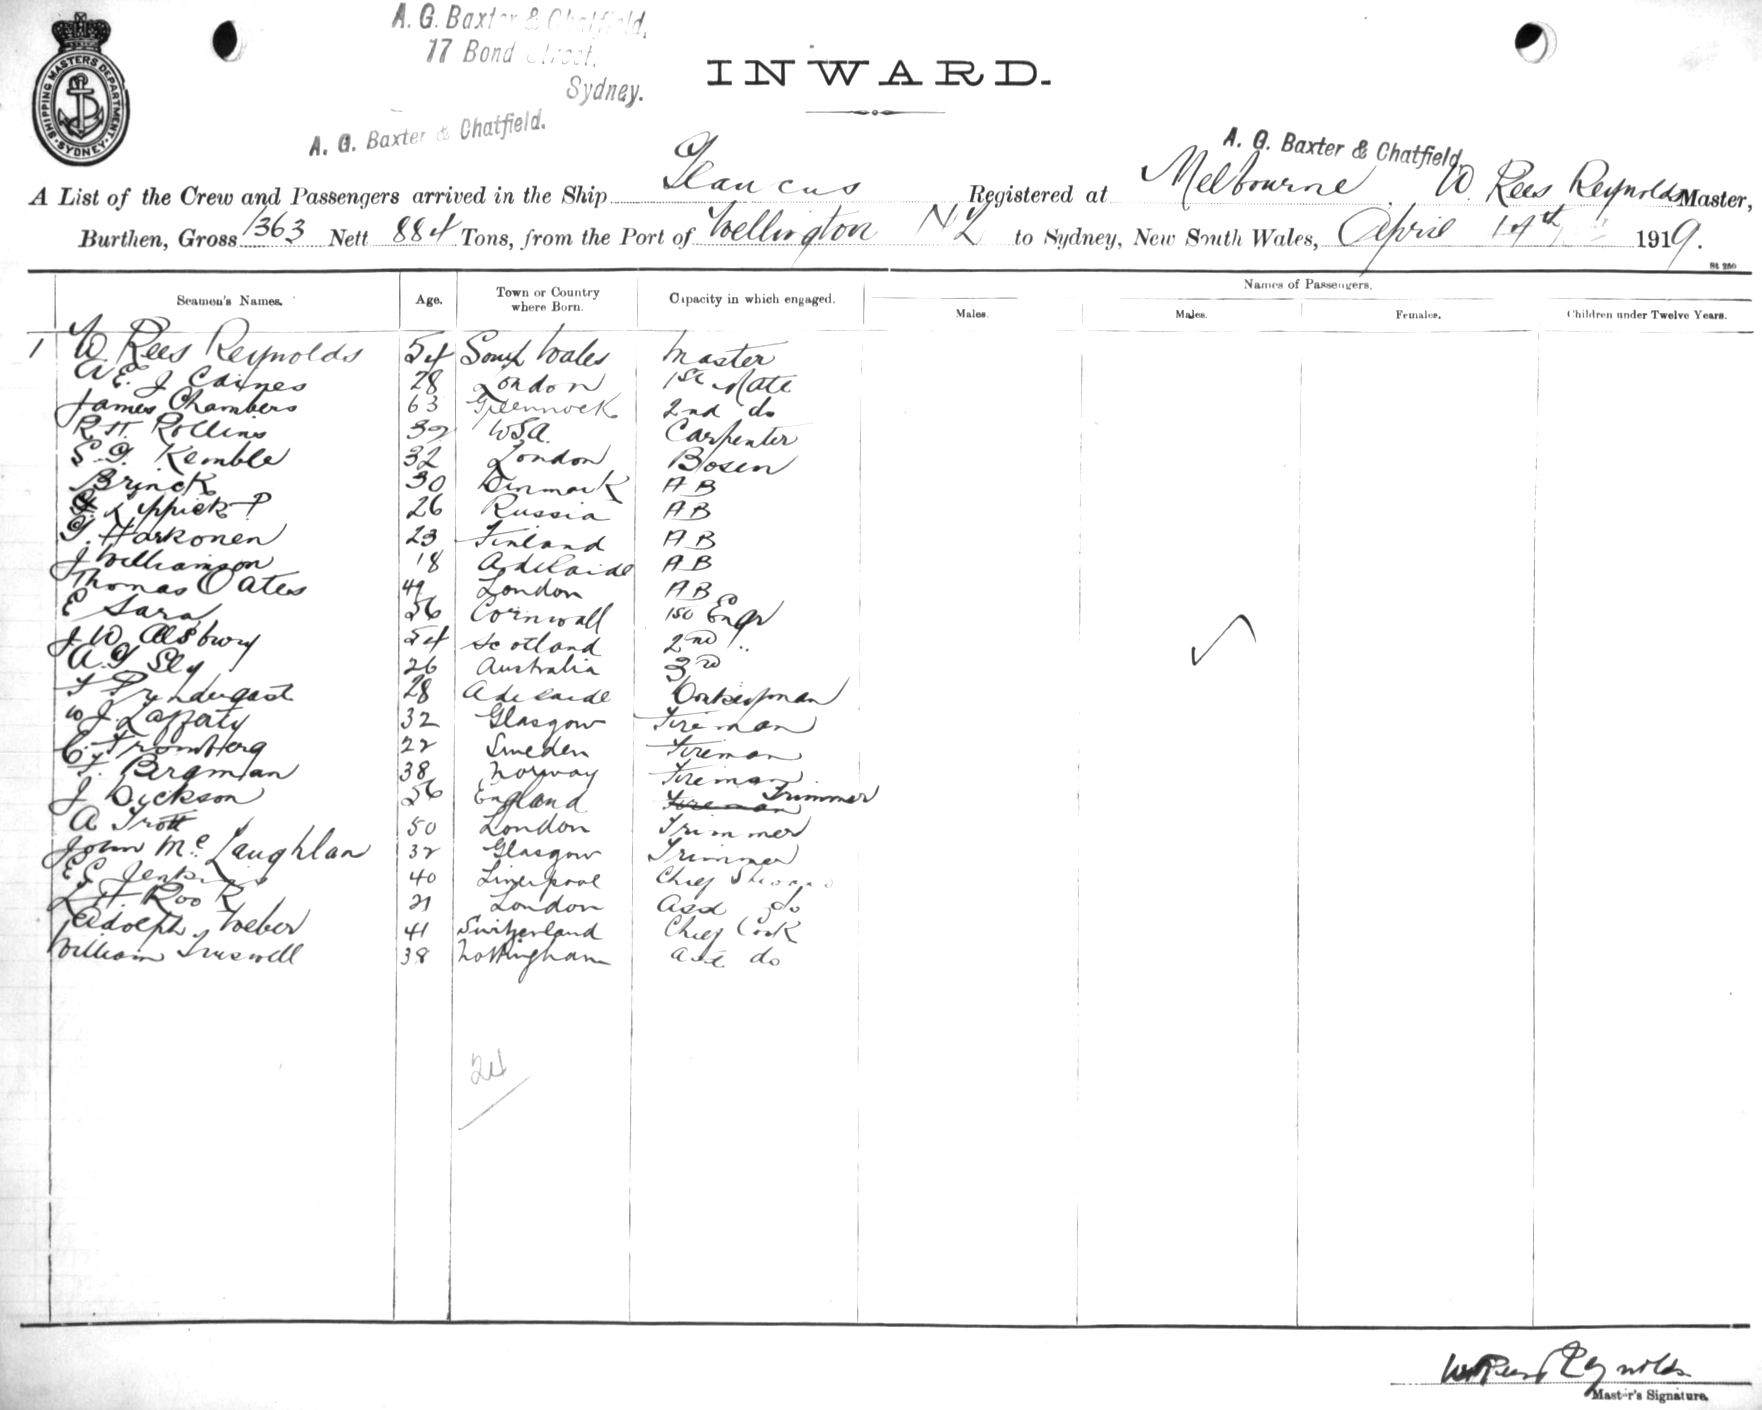 SHIPPING MASTERS DEPARTMENT
SYDNEY
A. G. Baxter & Chatfield,
17 Bond Street,
Sydney.
A. G. Baxter & Chatfield.
INWARD.
A. G. Baxter & Chatfield,
A List of the Crew and Passengers arrived in the Ship Glaucus Registered at Melbourne, W. Rees Reynolds Master,
Burthen, Gross 1363 Nett 884 Tons, from the Port of Wellington NZ to Sydney, New South Wales, April 1919.
Seamen's Names. Age. Town or Country where Born. Capacity in which engaged. Names of Passengers.
Males. Males. Females. Children under Twelve Years.
1 W. Rees Reynolds 54 South Wales Master
A E. J Caines 28 London 1st Mate
James Chambers 63 Greennock 2nd do
R. H. Rollins 39 USA. Carpenter
Kemble 32 London Bosun
Brinck 30 Dinmark AB
26 Russia AB
Harkonen 23 Finland AB
J Williamson 18 Adelaide AB
Thomas Oates 49 London AB
E Sara 56 Cornwall Engr
J W 54 Scotland 2nd "
A. G Sly 26 Australia 3rd
28 Adelaide
W J. Lafferty 32 Glasgow Fireman
C. Tromberg 22 Sweden Fireman
F. Bergman 38 Norway Fireman
J Dickson 56 England Fireman Trimmer
A Trott 50 London Trimmer
John McLaughlan 32 Glasgow Trimmer
40 Liverpool Chief
21 London Asst do
Adolph Weber 41 Switzerland Chief Cook
William Truswell 38 Nottingham Ast do
24
W Rees Reynolds
Master's Signature.